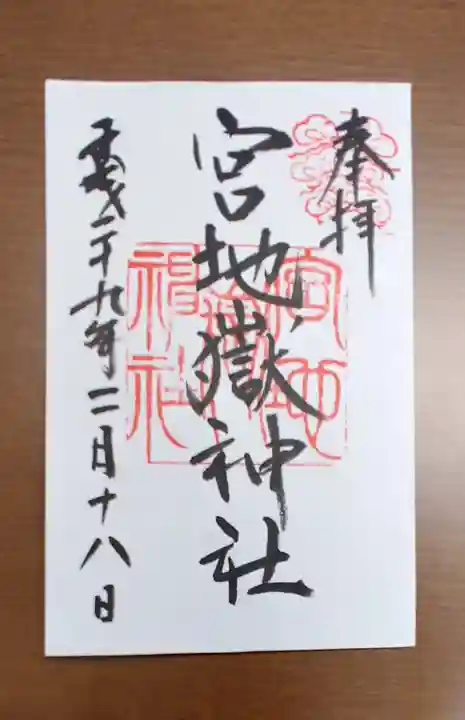 奉拝
宮地嶽神社
平成二十九年二月十八日
宮地
嶽
神社